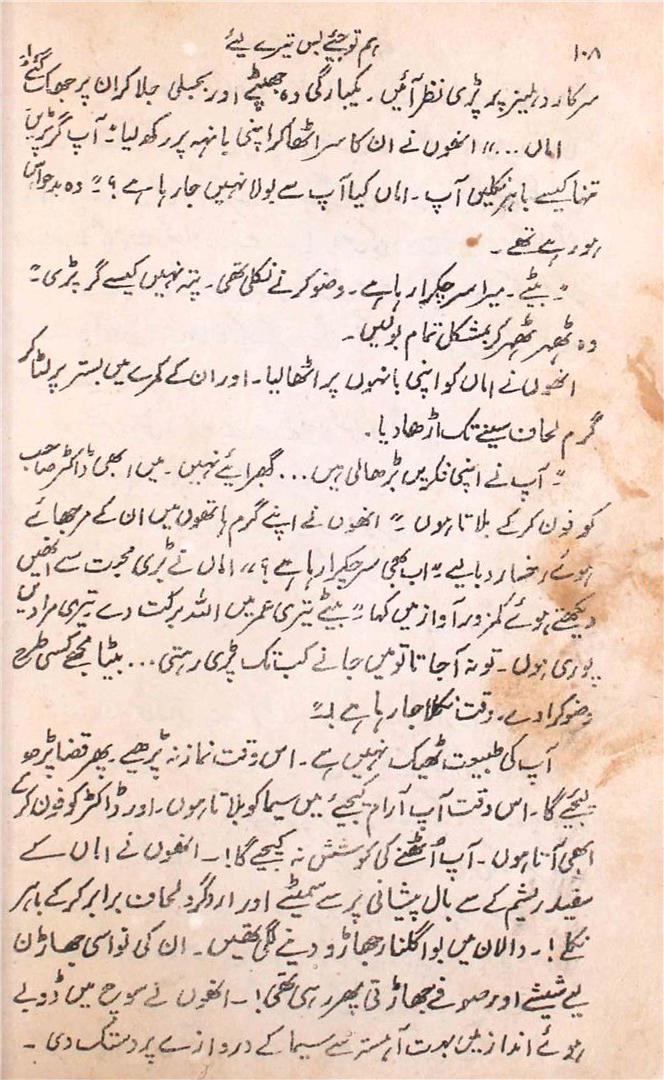 ۱۰۸ ہم تو جئے بس تیرے لیے
سرکار دہلیز پر پڑی نظر آئیں ۔ یکبارگی وہ جھپٹے اور بجلی جلا کر ان پر جھک گئے
اماں ...،، انھوں نے ان کا سر اٹھا کر اپنی بانہہ پر رکھ لیا ۔ آپ گر پڑیں
تنہا کیسے باہر نکلیں آپ ۔ اماں کیا آپ سے بولا نہیں جا رہا ہے ؟" وہ بدحواس
ہو رہے تھے ۔
" بیٹے ۔ میرا سر چکرا رہا ہے ۔ وضو کرنے نکلی تھی ۔ پتہ نہیں کیسے گر پڑی ۔"
وہ ٹھہر ٹھہر کر بمشکل تمام بولیں ۔
انھوں نے اماں کو اپنی بانہوں پر اٹھا لیا ۔ اور ان کے کمرے میں بستر پر لٹا کر
گرم لحاف سینے تک اڑھا دیا ۔
" آپ نے اپنی فکریں بڑھا لی ہیں ... گھبرایئے نہیں ۔ میں ابھی ڈاکٹر صاحب
کو فون کر کے بلاتا ہوں ۔" انھوں نے اپنے گرم ہاتھوں میں ان کے مرجھائے
ہوئے رخسار دبا لیے ۔ "اب بھی سر چکرا رہا ہے ؟،، اماں نے بڑی محبت سے انھیں
دیکھتے ہوئے کمزور آواز میں کہا " بیٹے تیری عمر میں اللہ برکت دے ۔ تیری مرادیں
پوری ہوں ۔ تو نہ آ جاتا تو میں جانے کب تک پڑی رہتی ... بیٹا مجھے کسی طرح
وضو کرا دے ۔ وقت نکلا جا رہا ہے ۔"
آپ کی طبیعت ٹھیک نہیں ہے ۔ اس وقت نماز نہ پڑھیے ۔ پھر قضا پڑھ
لیجئے گا ۔ اس وقت آپ آرام کیجئے میں سیما کو بلاتا ہوں ۔ اور ڈاکٹر کو فون کر کے
ابھی آتا ہوں ۔ آپ اُٹھنے کی کوشش نہ کیجئے گا ! ۔ انھوں نے اماں کے
سفید ریشم کے سے بال پیشانی پر سے سمیٹے اور اردگرد لحاف برابر کر کے باہر
نکلے ! ۔ دالان میں بوا گلنار جھاڑو دینے لگی تھیں ۔ ان کی نواسی جھاڑن
لیے شیشے اور صوفے جھاڑتی پھر رہی تھی ! ۔ انھوں نے سوچ میں ڈوبے
ہوئے انداز میں بہت آہستہ سے سیما کے دروازے پر دستک دی ۔